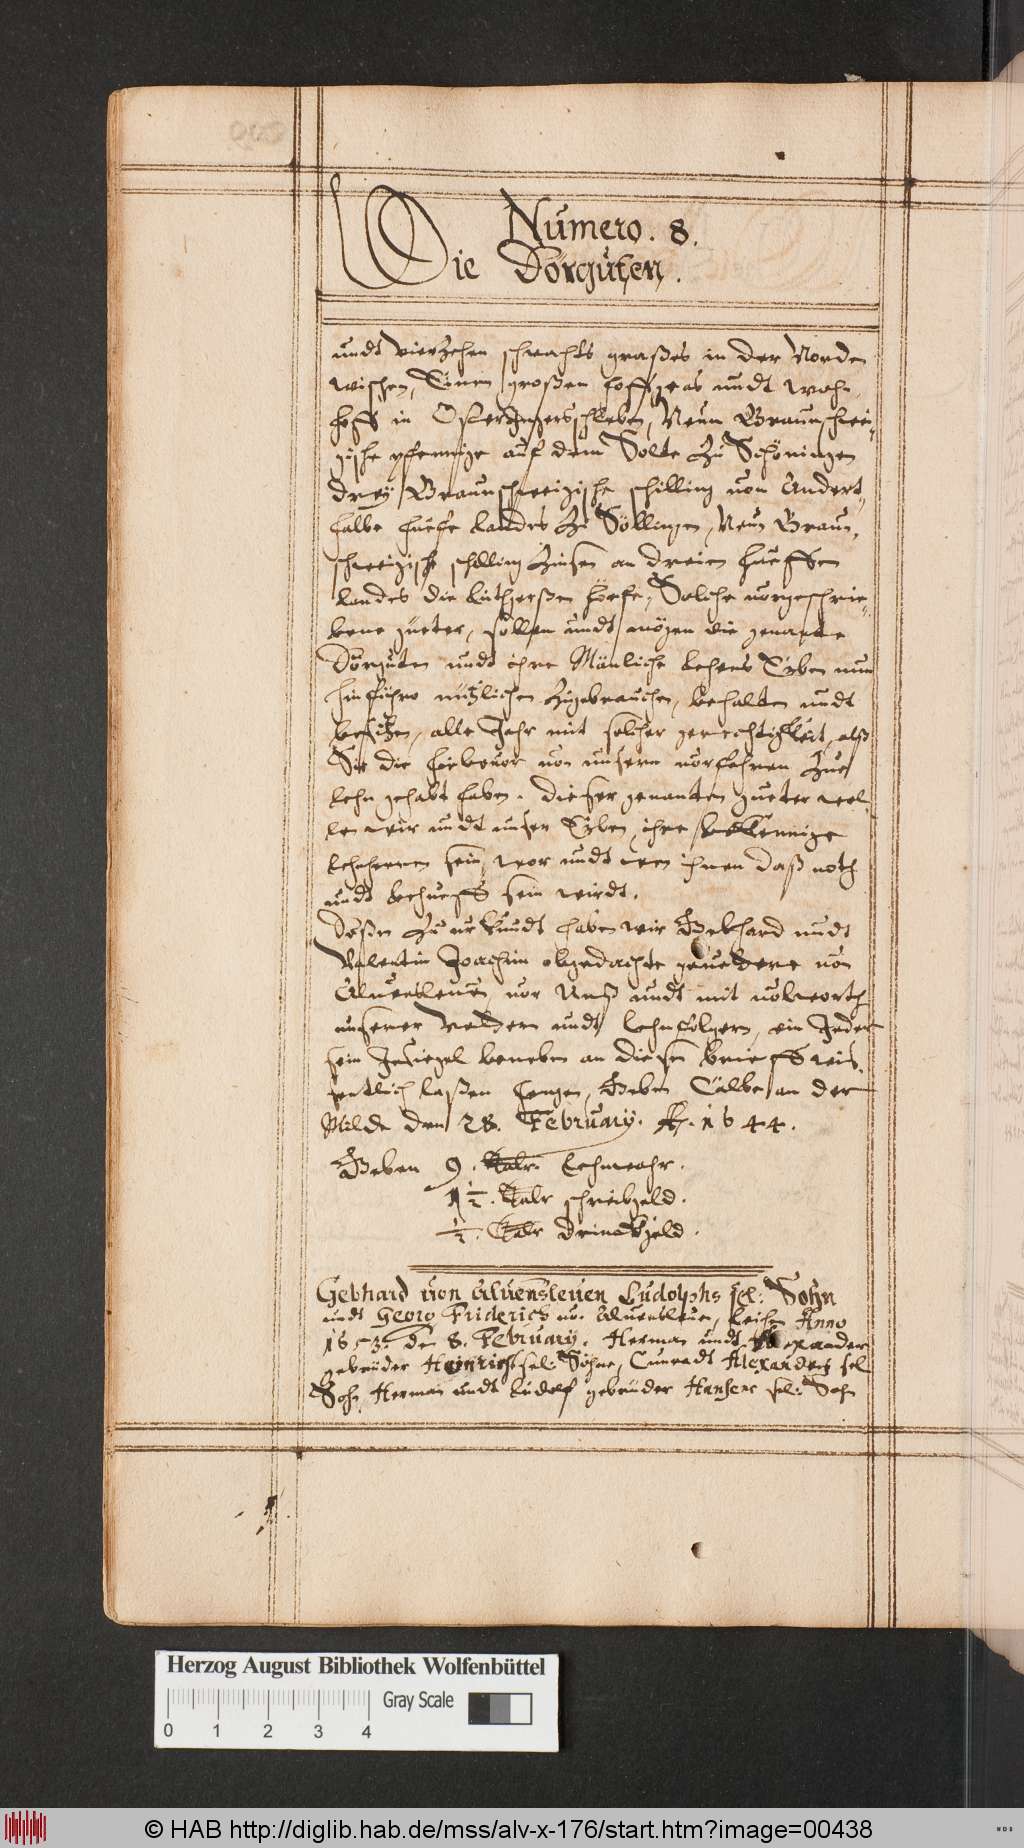 Numero. 8.
Die Dörguten.
undt vierzehen schwachts graßes in der Norden
wischen, Einen großen hoff, gras undt wohn
hoff in Osteringerschleben, Neun Braunschwei-
gische pfennige auf dem Solte zu Schöningen
drey Braunschweigische schilling von Andert-
halbe huefe landes zu Söllingen, Neun Braun-
schweigische schilling Zinsen an dreien hueffen
landes die Lutgerßen höefe, Solche vorgeschrie-
bene güeter, söllen undt mögen die genante
Dörguten undt ihre Mänliche lehens Erben nun
hinführo nützlichen zugebrauchen, behalten undt
besitzen, alle Jahr mit solcher gerechtigkeit, alß
Sie die hiebevor von unsern vorfahren zue
lehn gehabt haben. Dieser genanten gueter wol-
len wir undt unser Erben, ihre bekennige
lehnherren sein, wor undt wen ihnen daß noth
undt behueff sein wirdt.
Deßen zu urkundt haben wir Gebhard undt
Valentin Joachim obgedachte gevettere von
Alvensleven, vor Unß undt mit volworth
unserer Vettern undt lehnfolgern, ein Jeder
sein Insiegel beneben an diesen brieff wis-
sentlich laßen hengen, Geben Calbe an der
Milde den 28. February. Ao. 1644.
Geben 9. Talr. Lehnwahr.
1½. Talr schreibgeld.
½. Talr drinckgeld.
Gebhard von Alvensleven Ludolphs sel: Sohn
undt Georg Friderich vo. Alvensleven, leihen Anno
1653. den 8. February. Herman undt Alexander
gebrüder Heinrichs sel: Söhne, Cunradt Alexanders sel
Sohn, Herman undt Ludolf gebrüder Hansens sel: Sohn
Herzog August Bibliothek Wolfenbüttel
0 1 2 3 4 Gray Scale
© HAB http://diglib.hab.de/mss/alv-x-176/start.htm?image=00438